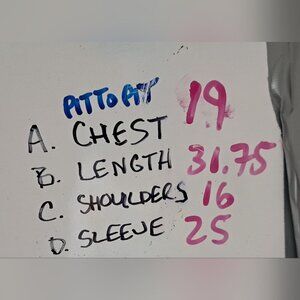 PIT TO PIT 19
A. CHEST
B. LENGTH 31.75
C. SHOULDERS 16
D. SLEEVE 25